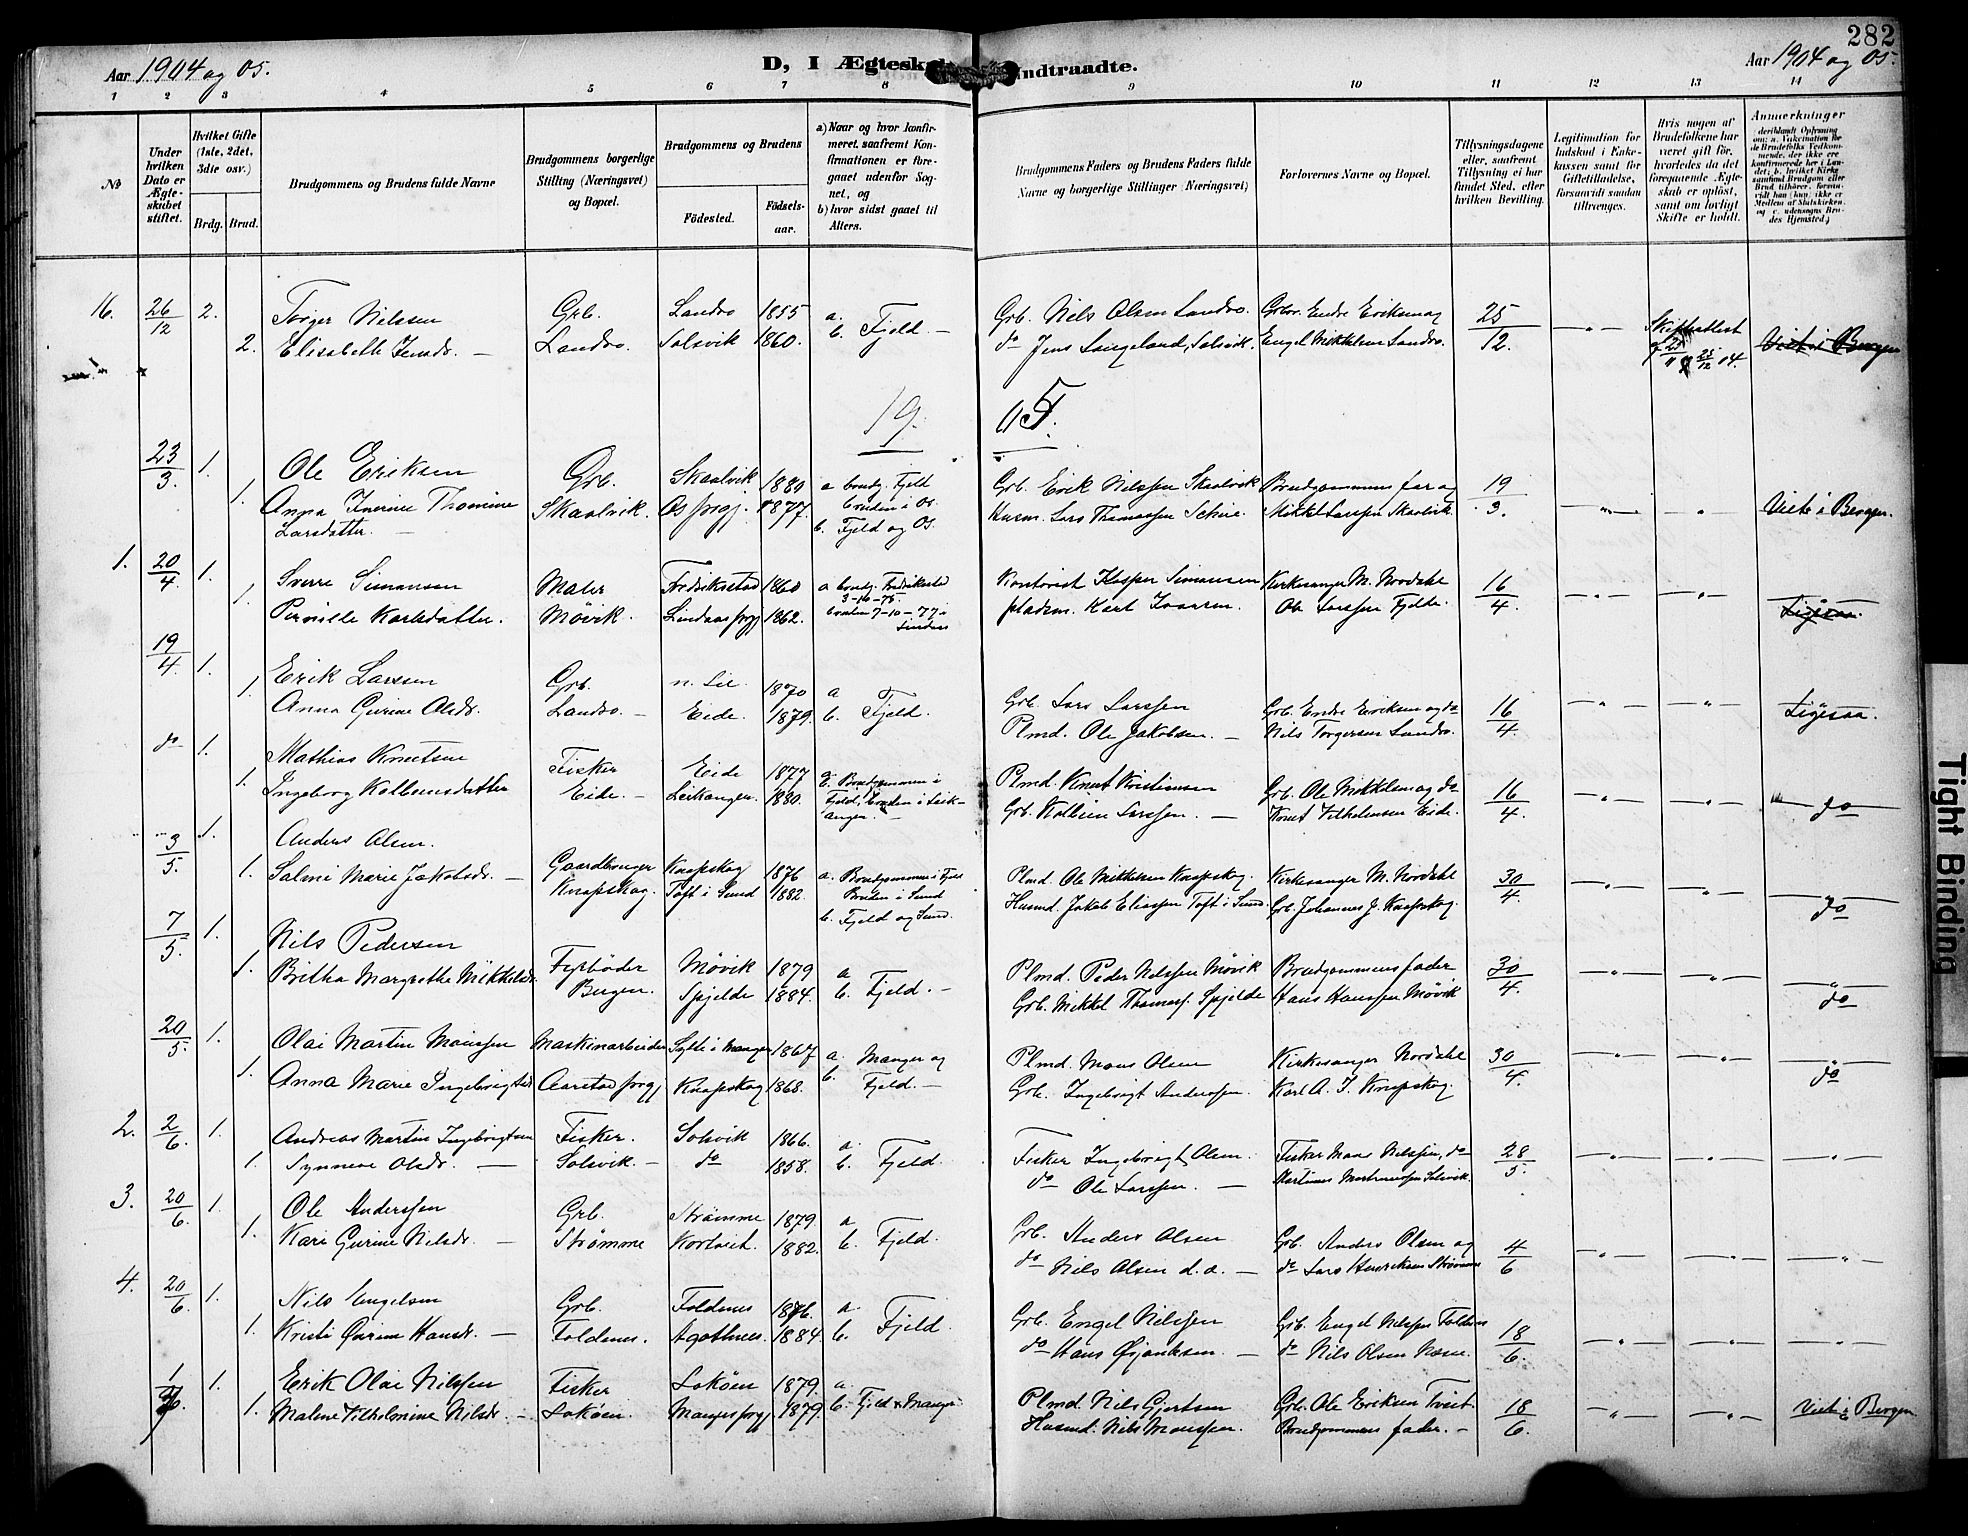 282
Aar 1904 og 05.
D, I Ægteskab Indtraadte.
Aar 1904 og 05.
1 2 3 4 5 6 7 8 9 10 11 12 13 14
No
Under hvilken Dato er Ægteskabet stiftet.
Hvilket Gifte (1ste, 2det, 3die osv.)
Brdg. Brud.
Brudgommens og Brudens fulde Navne
Brudgommens borgerlige Stilling (Næringsvei) og Bopæl.
Brudgommens og Brudens
Fødested.
Fødselsaar.
a) Naar og hvor konfirmeret, saafremt Konfirmationen er foregaaet udenfor Sognet, og
b) hvor sidst gaaet til Alters.
Brudgommens Faders og Brudens Faders fulde Navne og borgerlige Stillinger (Næringsvei)
Forlovernes Navne og Bopæl.
Tillysningsdagene eller, saafremt Tillysning ei har fundet Sted, efter hvilken Bevilling.
Legitimation for Indskud i Enkekassen samt for Giftetilladelse, forsaavidt saadan tiltrænges.
Hvis nogen af Brudefolkene har været gift før, hvorledes da det foregaaende Ægteskab er opløst, samt om lovligt Skifte er holdt.
Anmerkninger
16. 26/12 2. Torger Nilssen Grb. Landro 1855 a. Grb. Nils Olsen Landro. Grbr. Endre Eriksen og 25/12 Skifteattest
2. Elisabeth Jensdr. — Landro. Solsvik 1860. b. Fjeld. — do Jens Langeland, Solsvik. Engel Mikkelsen Landro. 25/12 04. Viet i Bergen
1905.
23/3. 1. Ole Eriksen Grb. Skaalvik 1880 a brudg. Fjeld Grb. Erik Nilssen Skaalvik Brudgommens far og 19/3.
1. Anna Thomine Skaalvik. Os prgj. 1877. bruden i Os Husm. Lars Thomassen Mikkel Larssen Skaalvik. Viet i Bergen.
Larsdatter. — b. Fjeld og Os.
1. 20/4 1. Sverre Simonsen Maler Fredrikstad 1860 a brudg. Fredrikstad Kasper Simonsen Kirkesanger M. Nordahl 16/4.
3-10-75.
1. Pernille Karlsdatter. Møvik. Lindaas prgj 1862. bruden 7-10-77 i Pladsm. Karl Ole Larssen Fjeld. Ligesaa.
Lindaas
19/4 1. Erik Larssen Grb. n. Lie 1870 a Grb. Lars Larssen Grb. Endre Eriksen og do 16/4.
1. Anna Gurine Olsdr. Landro. — Eide. 1879. b. Fjeld. Plmd. Ole Jakobsen. — Nils Torgersen Landro. Ligesaa.
do 1. Mathias Knutsen Fisker Eide 1877 a. Brudgommen i Plmd. Knut Kristiansen Grb. Ole Mikkelsen og do 16/4.
1. Ingeborg Kolbeinsdatter Eide. — Leikanger. 1880. Fjeld, bruden i Leikanger. — Grb. Kolbein Larssen. — Knut Vilhelmsen Eide. do
3/5. 1. Anders Olsen. Gaardbruger Knapskog 1876 a. Brudgommen i Fjeld Plmd. Ole Mikkelsen Knapskog. Kirkesanger M. Nordahl 30/4.
1. Salmi Marie Jakobsdr. — Knapskog. Toft i Sund 1882. Bruden i Sund Husmd. Jakob Eliassen Toft i Sund. Grb. Johannes J. Knapskog. do
b. Fjeld og Sund.
7/5. 1. Nils Pedersen Fyrbøder Møvik 1879 a Plmd. Peder Nilssen Møvik Brudgommens fader 30/4.
1. Britha Margrethe Mikkelsdr. Bergen. Spjelde 1884. b. Fjeld. — Grb. Mikkel Thomass. Spjelde Hans Hanssen Møvik do
20/5. 1. Olai Martin Monssen Maskinarbeider Sylte i Manger 1867 a. Manger og Plmd. Mons Olsen Kirkesanger Nordahl 30/4.
1. Anna Marie Ingebrigtsdr. Aarstad prgj. Knapskog 1868. b. Fjeld. — Grb. Ingebrigt Anderssen. Karl A. J. Knapskog. do
2. 2/6. 1. Andreas Martin Ingebrigtsen Fisker. Solsvik 1866. a. Fisker Ingebrigt Olsen. Fisker Mons Nilssen, do 28/5.
1. Synneve Olsdr. — Solsvik. — do 1858. b. Fjeld. do Ole Larssen. — Solsvik.
3. 20/6. 1. Ole Anderssen Grb. Strømme 1879. a. Grb. Anders Olsen Grb. Anders Olsen og 4/6
1. Kari Gurine Nilsdr. — Strømme Kortveit. 1882. b. Fjeld. do Nils Olsen d.a. — do Lars Henriksen Strømme
4. 20/6. 1. Nils Engelsen Grb. Foldenes 1876. a. Grb. Engel Nilssen Grb. Engel Nilssen Foldenes 18/6.
1. Kristi Gurine Hansdr. — Foldenes. Agotnes. 1884 b. Fjeld. do Hans — do Nils Olsen
1. Erik Olai Nilssen Fisker Lokøen 1879. a. Plmd. Nils Gjertsen Grb. Ole Eriksen Tveit. 18/6.
1. Maline Vilhelmine Nilsdr. — Lokøen. Manger prgj 1879. b. Fjeld & Manger Husmd. Nils Monssen. Brudgommens fader. — Viet i Bergen
Tight Binding